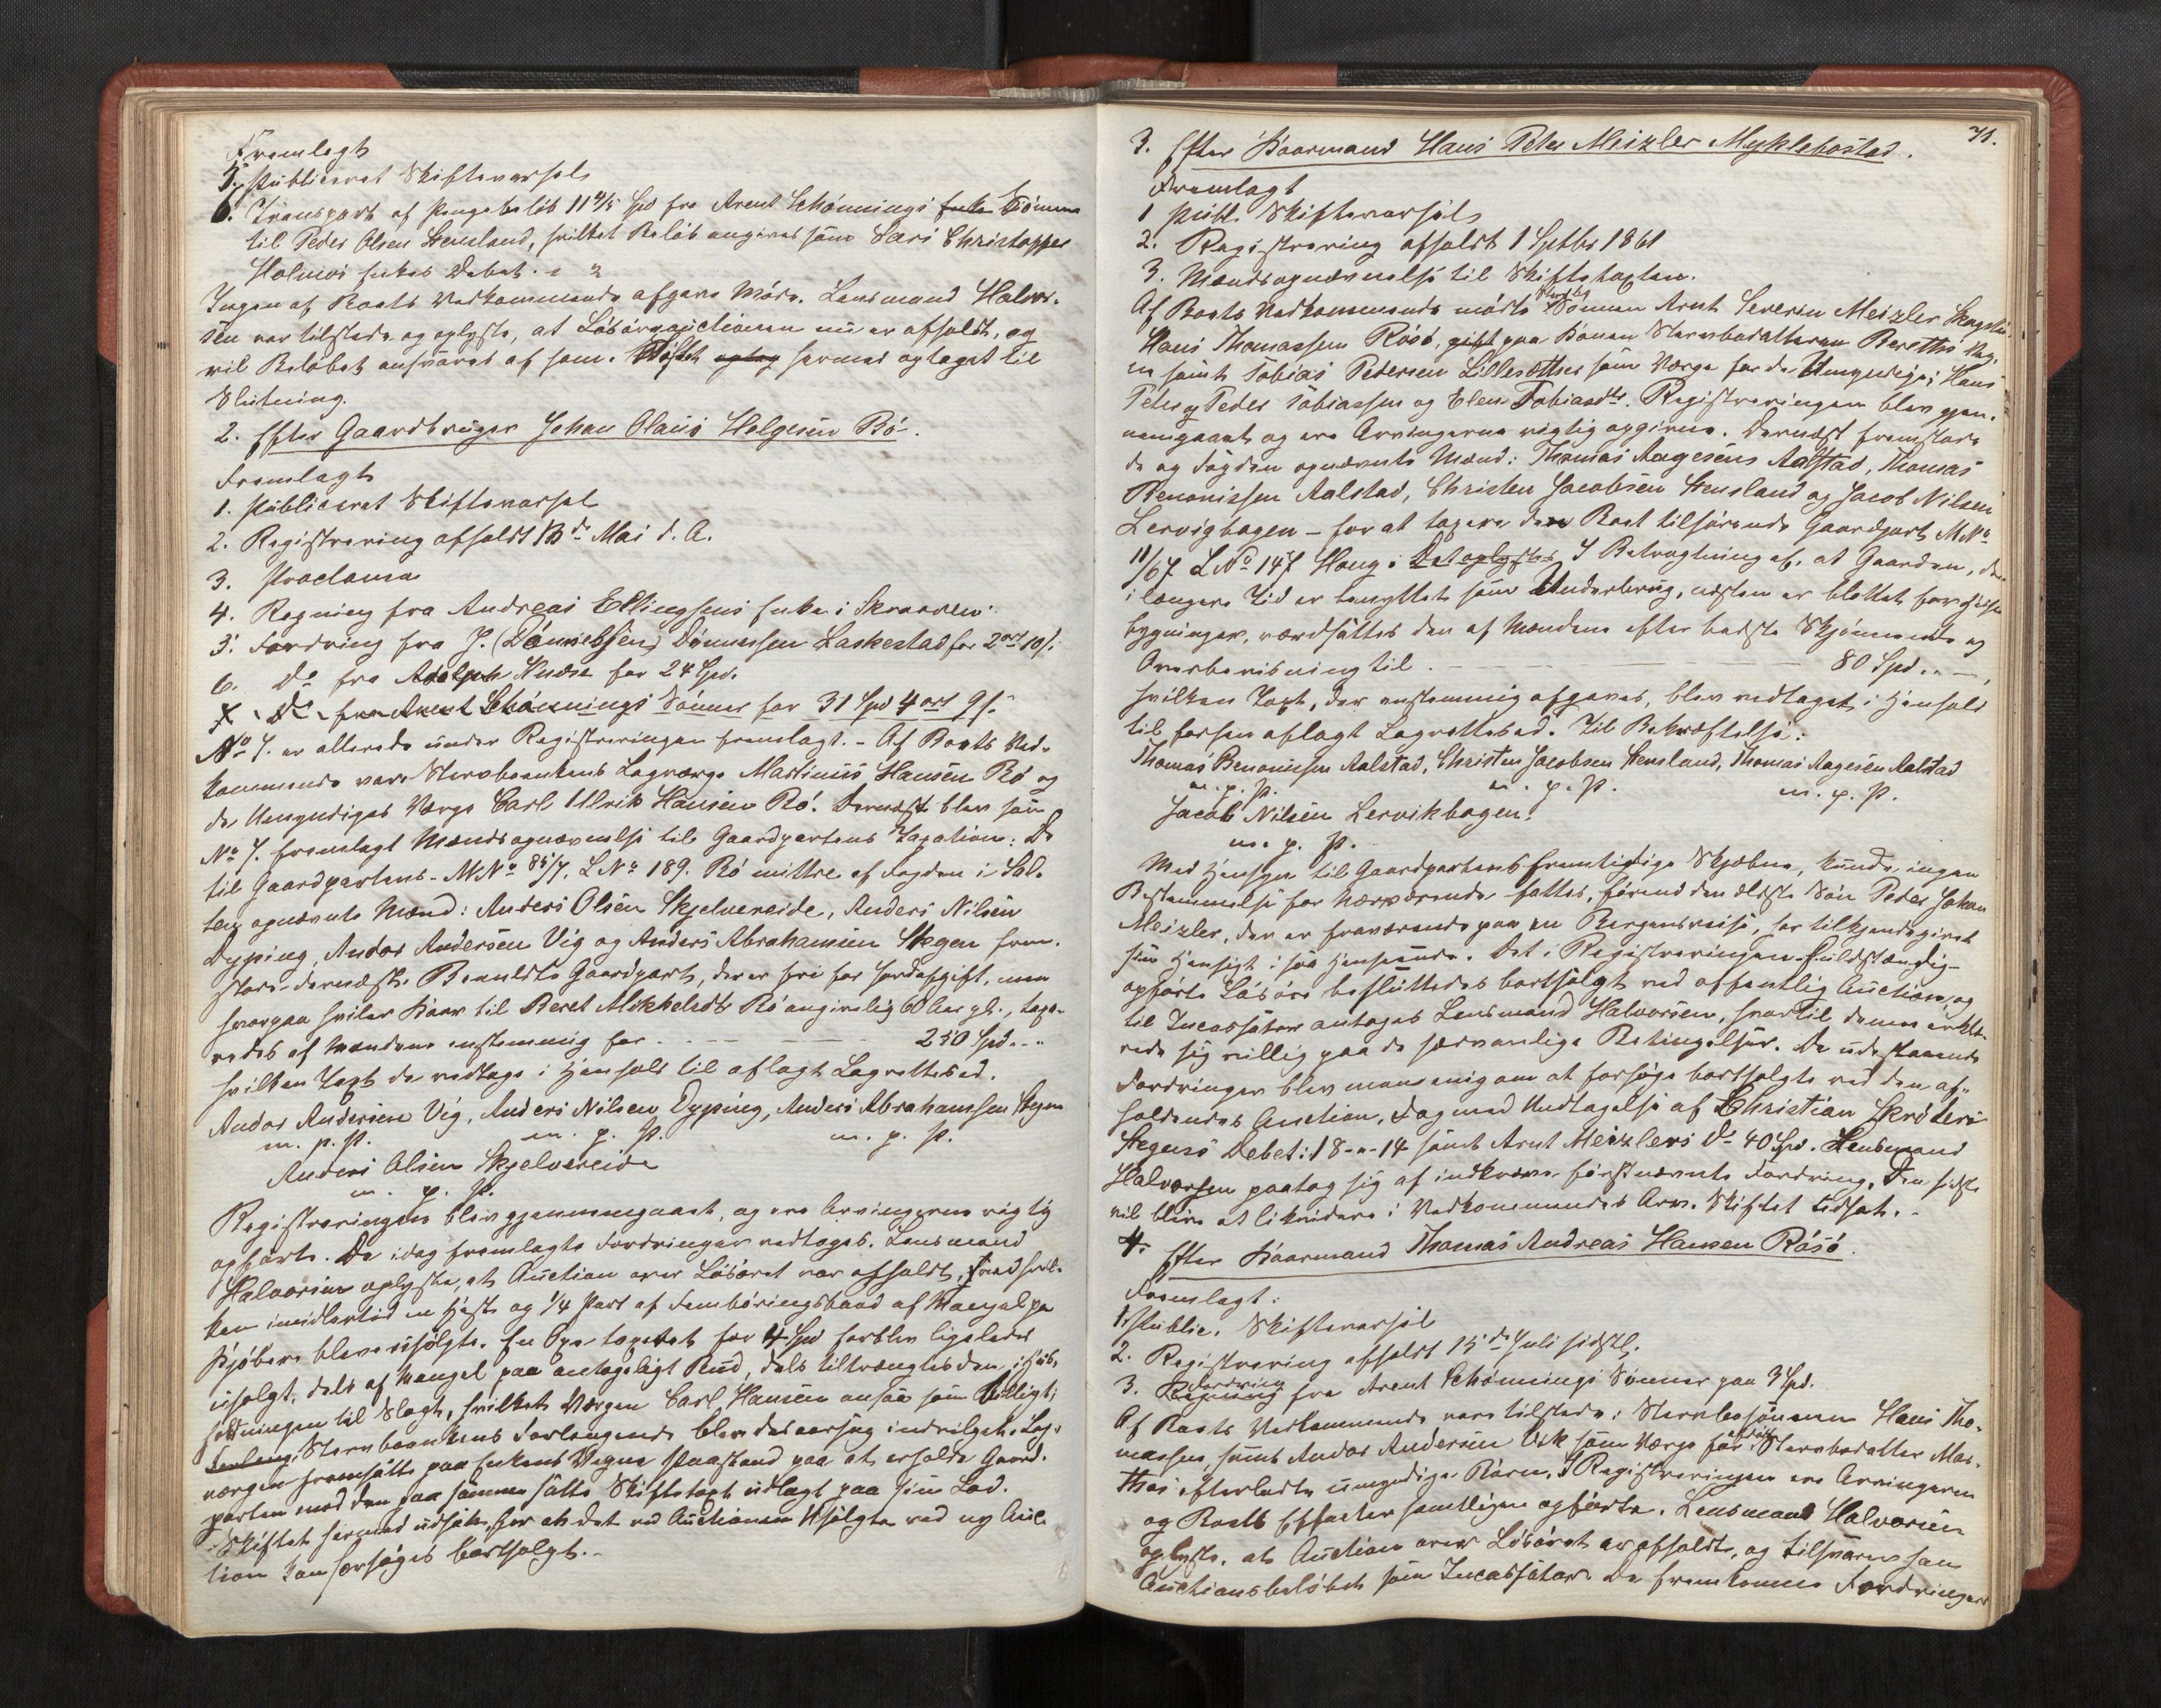 Fremlagt
5. Publiceret Skiftevarsel
6. Transport af Pengebeløb 11 4/5 Spd fra Arent Schønnings Enke Sønner
til Peder Olsen Stensland, hvilket Beløb angives som Lars Christopher
Holmvis Enkes Debet.
Ingen af Boets Vedkommende afgave Møde. Lensmand Halvor-
sen var tilstede og oplyste, at Løsøreauctionen nu er afholdt, og
vil Beløbet ansvares af ham. Skiftet optag hermed optaget til
Slutning.
2. Efter Gaardbruger Johan Olaus Helgesen Bø.
Fremlagt
1. Publiceret Skiftevarsel
2. Registrering afholdt 13de Mai d. A.
3. Proclama
4. Regning fra Andreas Ellingsens Enke i Skraaven
5. Fordring fra J. (Dønnessen) Dønnessen Laskestad for 2 ort 10 s.
6. Do fra Adolph Knudse for 24 Spd.
7. Do fra Arent Schønnings Sønner for 31 Spd 4 ort 9 s.
No 7. er allerede under Registreringen fremlagt. - Af Boets Ved-
kommende vare Stervboenkens Lagværge Martinus Hansen Bø og
de Umyndiges Værge Carl Ulrik Hansen Bø. Dernæst blev som
No 7. fremlagt Mændsopnævnelse til Gaardpartens Taxation: De
til Gaardpartens - M No 85/7. L No 189. Bø mittre af Fogden i Sal-
ten opnævnte Mænd: Anders Olsen Skjelvereide, Anders Nilsen
Dyping, Andor Andersen Vig og Anders Abrahamsen Stegen frem-
stod dernæst. Benævnte Gaardpart, der er fri for Jordafgift, men
hvorpaa hviler Kaar til Beret Mikkelsdtr Bø angivelig 60 Aar gl., taxe-
redes af Mændene enstemmig for - - - 250 Spd. "
hvilken Taxt de vedtoge i Henhold til aflagt Lagrettesed.
Andor Andersen Vig, Anders Nilsen Dyping, Anders Abrahamsen Stegen
m. p. P. m. p. P. m. p. P.
Anders Olsen Skjelvereide
m. p. P.
Registreringen blev gjennemgaaet, og ere Arvingerne rigtig
opført. De idag fremlagte Fordringer vedtoges. Lensmand
Halvorsen oplyste, at Auction over Løsøret var afholdt, ved hvil-
ken imidlertid en Hest og 1/4 Part af Fembøringsbaad af Mangel paa
Kjøbere bleve usolgte. En Oxe taxeret for 4 Spd forblev ligeledes
usolgt, dels af Mangel paa antageligt Bud, dels tiltrængtes den i Hus-
holdningen til Slagt, hvilket Værgen Carl Hansen ansaa som billigt;
Stervboenkens Forlangende blev desaarsag indvilget. Lag-
værgen fremsatte paa Enkens Vegne Paastand paa at erholde Gaard-
parten mod den paa samme satte Skiftetaxt udlagt paa sin Lod.
Skiftet hermed udsat, for at det ved Auctionen Usolgte ved ny Auc-
tion kan forsøges bortsolgt. -
71.
3. Efter Kaarmand Hans Peter Meizler Myklebostad.
Fremlagt
1 Publ. Skiftevarsel
2. Registrering afholdt 1 Septbr 1861
3. Mændsopnævnelse til Skiftetaxten.
Af Boets Vedkommende mødte Sønnen Arnt Severin Meizler Skagstad,
Hans Thomassen Røsø, gift paa Konen Stervbodatteren Berethes Veg-
ne samt Tobias Pedersen Lillesætther som Værge for de Umyndige; Hans
Peter og Peder Tobiassen og Elen Tobiasdtr. Registreringen blev gjen-
nemgaaet og ere Arvingerne rigtig opgivne. Dernæst fremstode
de af Fogden opnævnte Mænd: Thomas Aagesens Aalstad, Thomas
Benonissen Aalstad, Christen Jacobsen Stensland og Jacob Nilsen
Lervigbogen - for at taxere den Boet tilhørende Gaardpart M No
11/67 L No 147 Haug. Det oplystes I Betragtning af, at Gaarden, der
i længere Tid er benyttet som Underbrug, næsten er blottet for Huse-
bygninger, værdsattes den af Mændene efter bedste Skjønnende og
Overbevisning til - - - 80 Spd. " -,
hvilken Taxt, der enstemmig afgaves, blev vedtaget i Henhold
til forhen aflagt Lagrettesed. Til Bekræftelse:
Thomas Benonissen Aalstad, Christen Jacobsen Stensland, Thomas Aagesen Aalstad
m. p. P. m. p. P. m. p. P.
Jacob Nilsen Lervikbogen.
m. p. P.
Med Hensyn til Gaardpartens fremtidige Skjæbne, kunde ingen
Bestemmelse for nærværende fattes, førend den ældste Søn Peder Johan
Meizler, der er fraværende paa en Bergensreise, har tilkjendegivet
sin Hensigt i saa Henseende. Det i Registreringen fuldstændig
opførte Løsøre besluttedes bortsolgt ved offentlig Auction, og
til Incassator antoges Lensmand Halvorsen, hvortil denne erklæ-
rede sig villig paa de sædvanlige Betingelser. De udestaaende
Fordringer blev man enig om at forsøge bortsolgte ved den af-
holdendes Auction, dog med Undtagelse af Christian Skrøders
Stegens Debet: 18-"-14 samt Arnt Meizlers Do 40 Spd. Lensmand
Halvorsen paatog sig at indkræve førstnævnte Fordring. Den sidste
vil blive at likvidere i Vedkommendes Arv. Skiftet udsat. -
4. Efter Kaarmand Thomas Andreas Hansen Røsø.
Fremlagt:
1. Public. Skiftevarsel
2. Registrering afholdt 15de Juli sidstl.
3. Regning Fordring fra Arent Schønnings Sønner paa 3 Spd.
Af Boets Vedkommende vare tilstede: Stervbosønnen Hans Tho-
massen, samt Andor Andersen Vik som Værge for afdøde Stervbodatter Mar-
thas efterladte umyndige Børn. I Registreringen ere Arvingerne
og Boets Effecter samtligen opførte. Lensmand Halvorsen
oplyste, at Auction over Løsøret er afholdt, og tilsvarer han
Auctionsbeløbet som Incassator. De fremkomne Fordringer